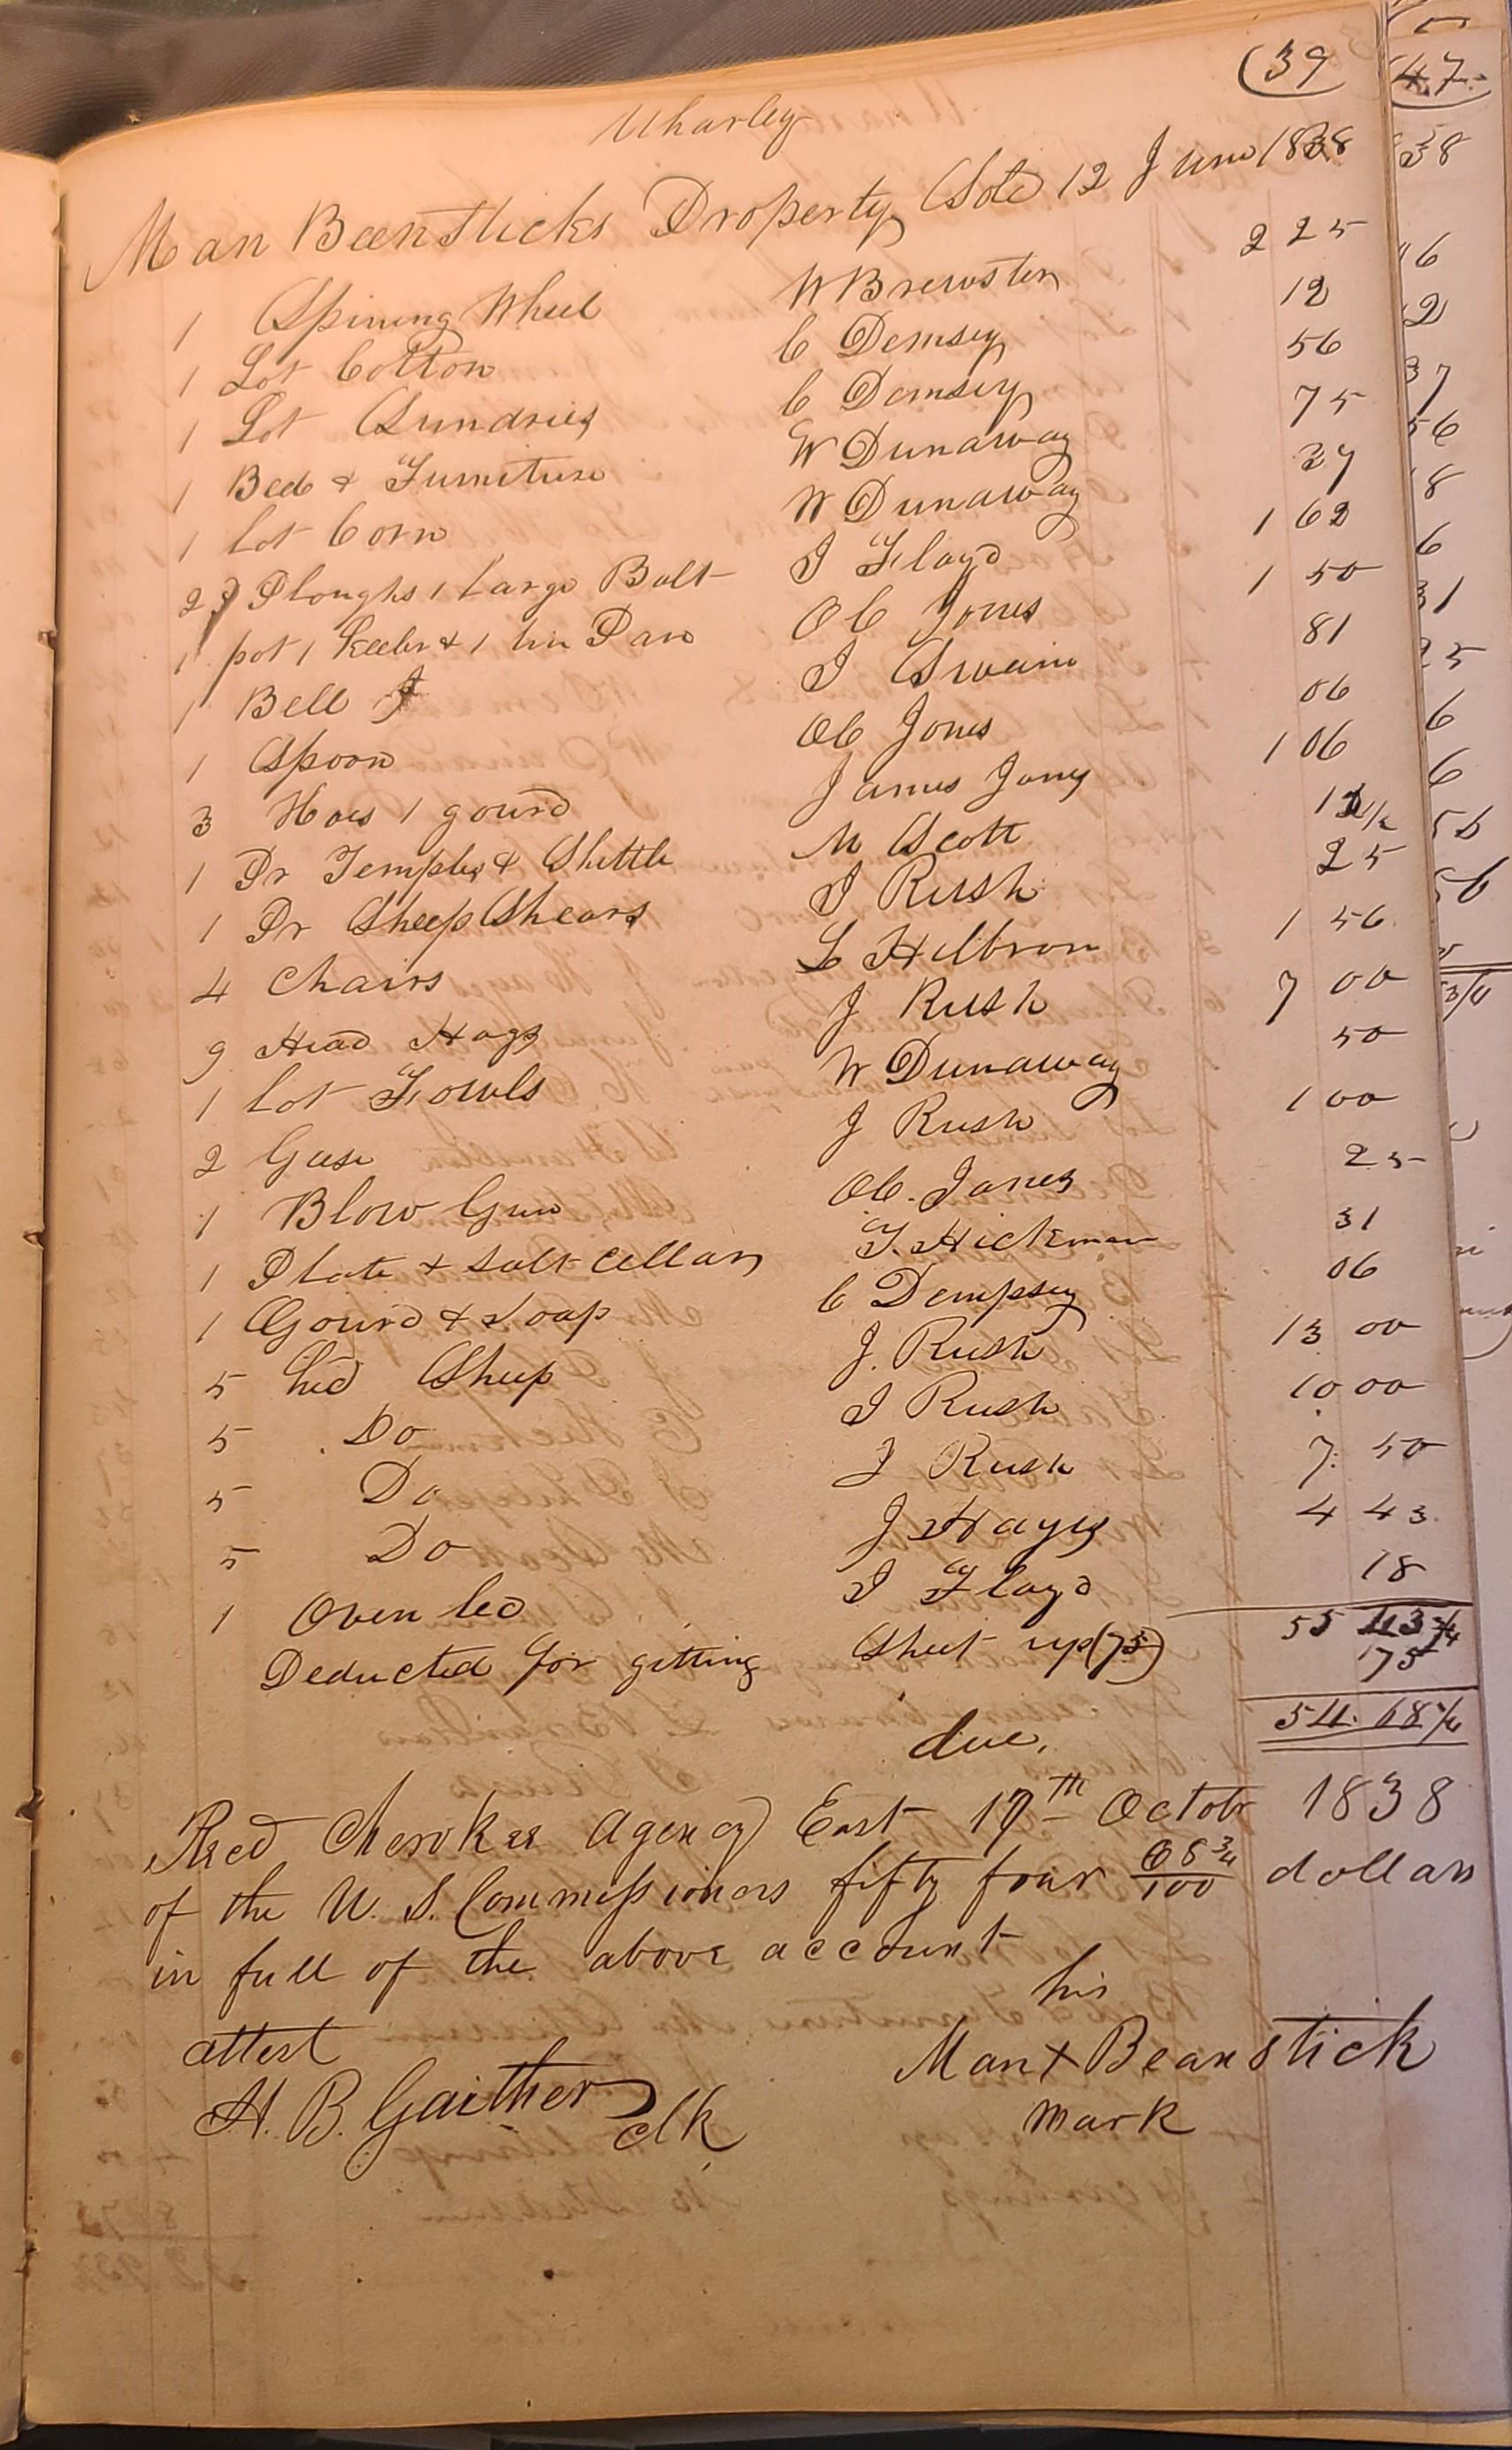 (39
Wharley
Man Beensticks Property Sole 12 June 1838
1 Spining Wheel W Brewster 2 25
1 Lot Cotton C Demsey 12
1 Lot Sundries C Demsey 56
1 Bed & Furniture W Dunaway 75
1 Lot Corn W Dunaway 37
2 Ploughs 1 Large Bolt J Floyd 1 62
1 pot 1 Keeler & 1 tin Pan Ob Jones 1 50
1 Bell J Swaim 81
1 Spoon Ob Jones 06
3 Hoes 1 gourd James Jones 1 06
1 Pr Temples & Shittle M Scott 12 1/2
1 Pr Sheep Shears J Rush 25
4 Chairs L Hilbron 1 56
9 Head Hogs J Rush 7 00
1 Lot Fowls W Dunaway 50
2 Geese J Rush 1 00
1 Blow Gun Ob. Jones 25
1 Plate & Salt cellar T. Hickman 31
1 Gourd & Soap C Dempsey 06
5 hed Sheep J. Rush 13 00
5 Do J Rush 10 00
5 Do J Rush 7. 50
5 Do J Hayes 4 43
1 Oven led J Floyd 18
Deducted for gitting Sheet up (75) 55 43 3/4
75
due, 54. 68 3/4
Recd Cherokee Agency East 17th Octobr 1838
of the U. S. Commissioners fifty four 68 3/4/100 dollars
in full of the above account
his
attest Man + Beanstick
H. B. Gaither clk mark
47